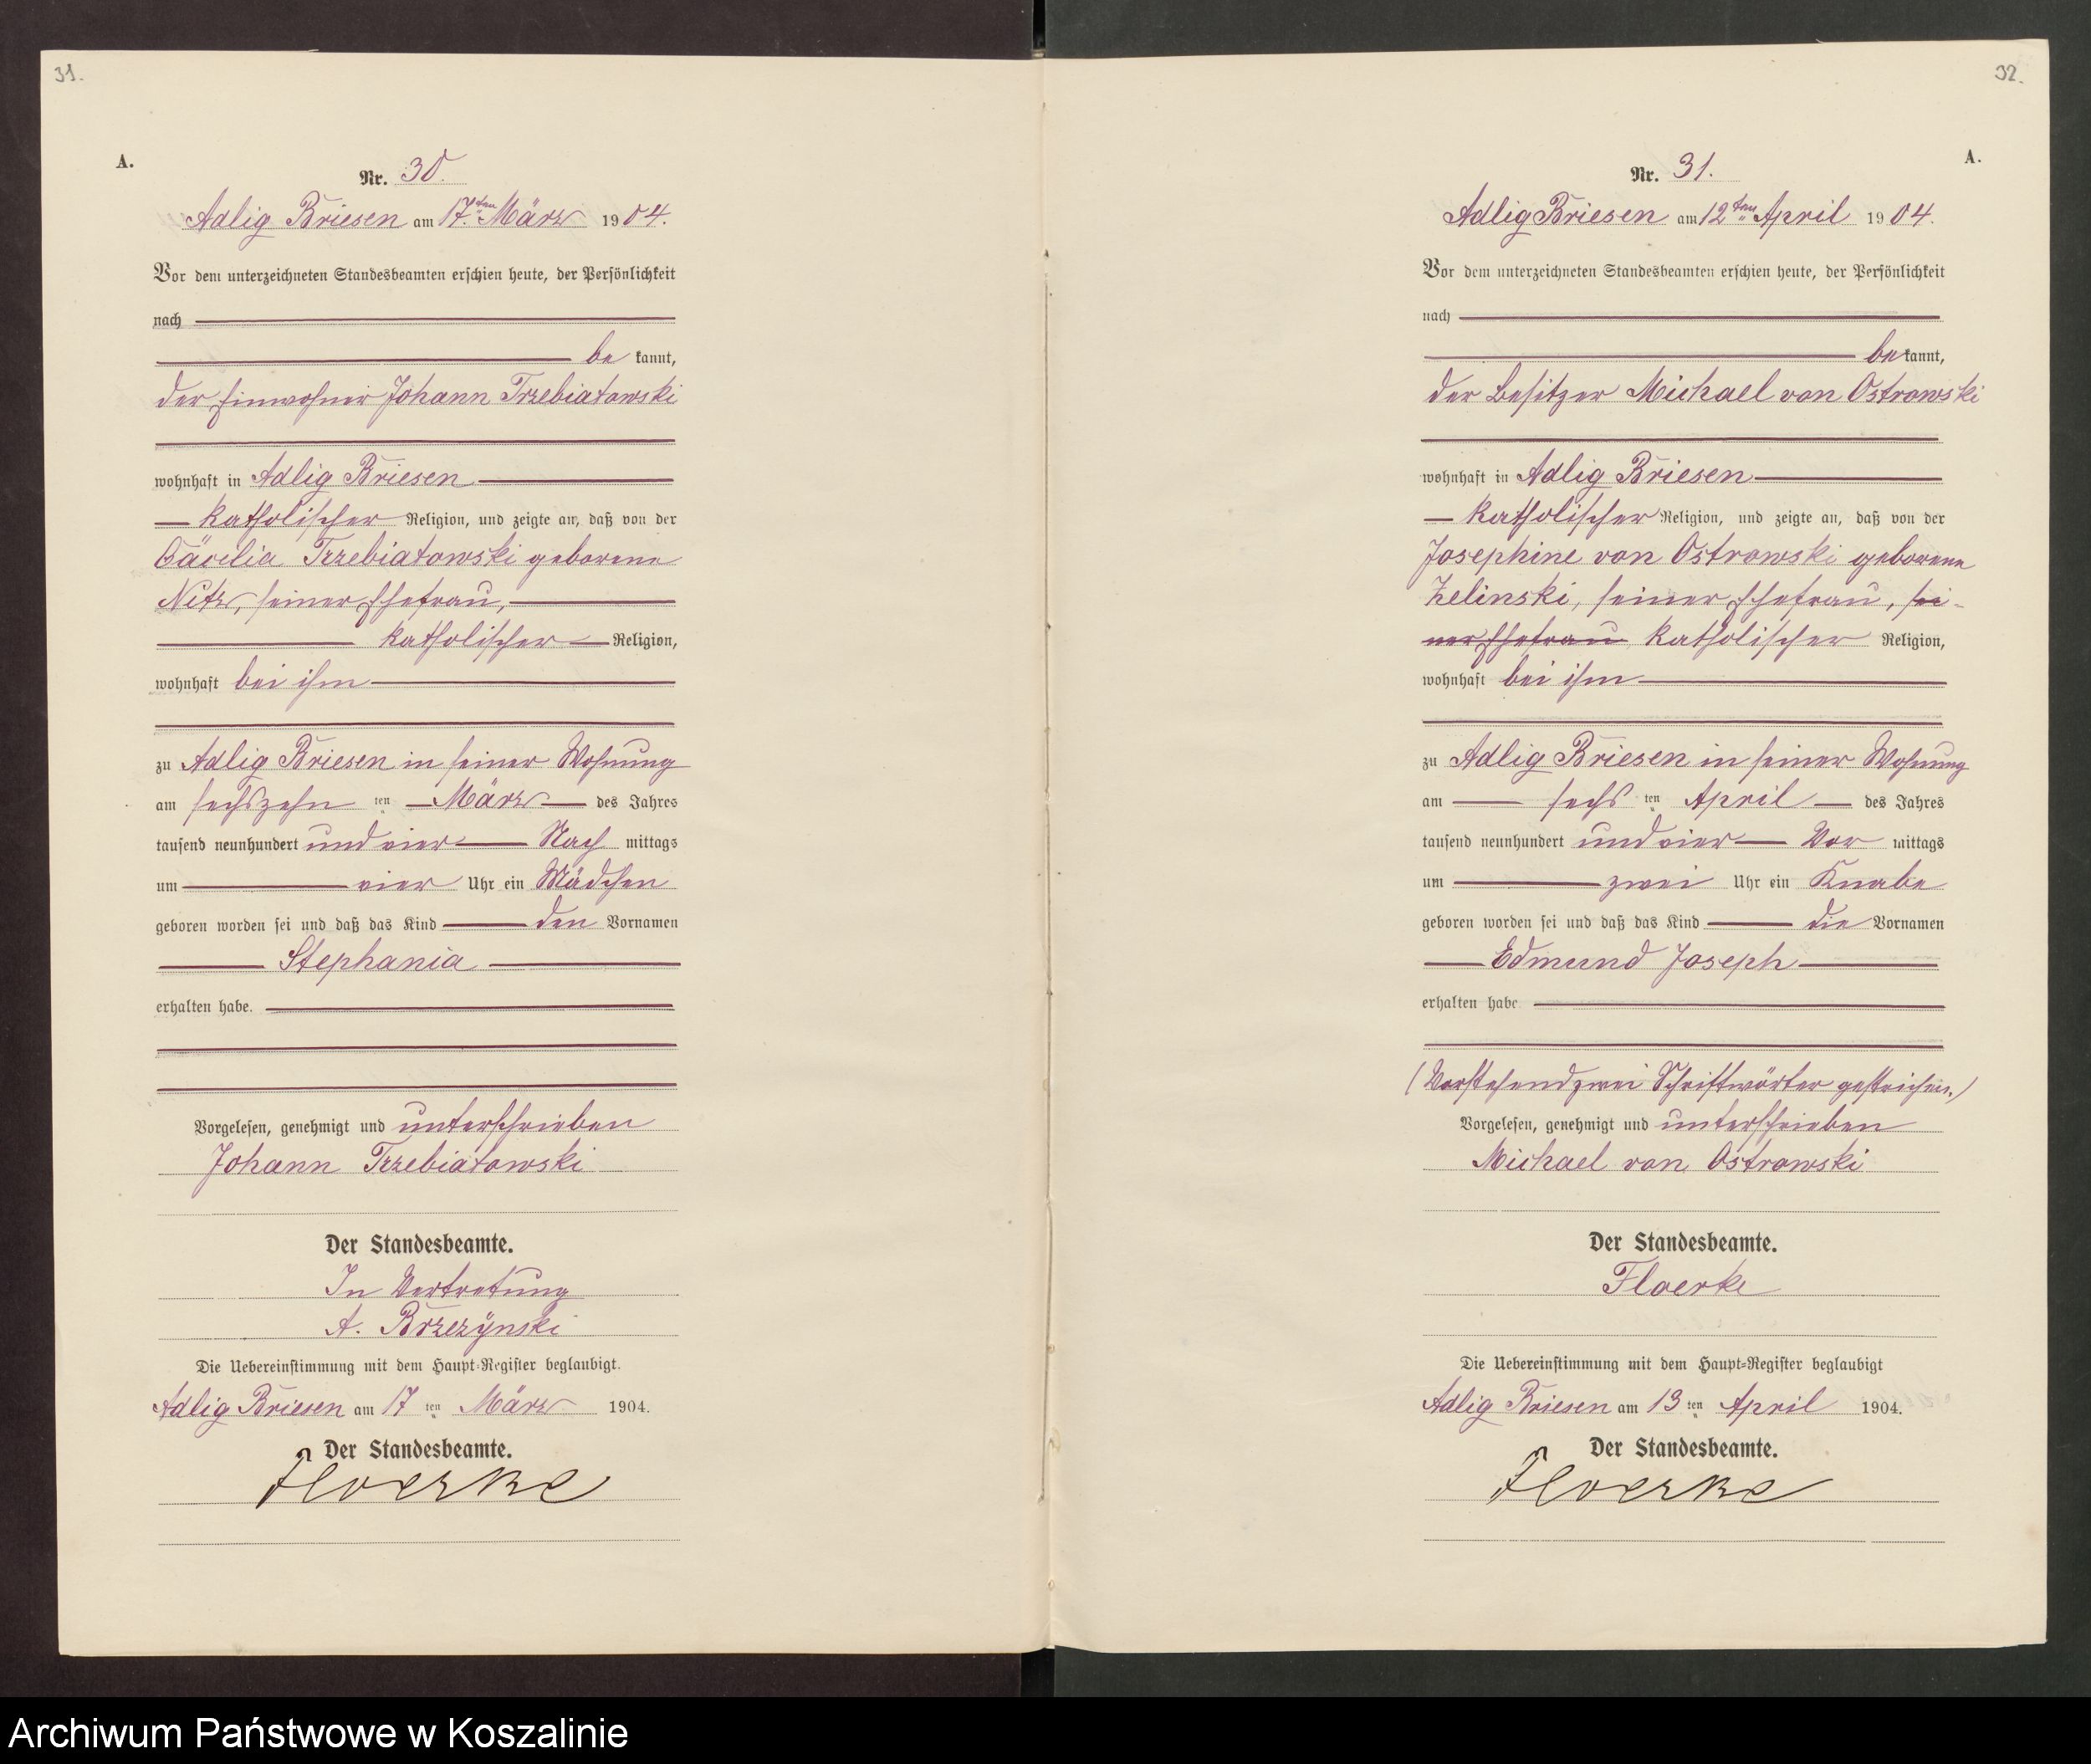 31.
A.
Nr. 30.
Adlig Briesen am 17.ten März 1904.
Vor dem unterzeichneten Standesbeamten erschien heute, der Persönlichkeit
nach
be kannt,
der Einwohner Johann Trzebiatowski
wohnhaft in Adlig Briesen
katholischer Religion, und zeigte an, daß von der
Cäcilia Trzebiatowski geborene
Nitz, seiner Ehefrau,
katholischer Religion,
wohnhaft bei ihm
zu Adlig Briesen in seiner Wohnung
am sechszehn ten März des Jahres
tausend neunhundert und vier Nach mittags
um vier Uhr ein Mädchen
geboren worden sei und daß das Kind den Vornamen
Stephania
erhalten habe.
Vorgelesen, genehmigt und unterschrieben
Johann Trzebiatowski
Der Standesbeamte.
In Vertretung
A. Brzezÿnski
Die Uebereinstimmung mit dem Haupt-Register beglaubigt.
Adlig Briesen am 17 ten März 1904.
Der Standesbeamte.
Floerke
32.
A.
Nr. 31.
Adlig Briesen am 12ten April 1904.
Vor dem unterzeichneten Standesbeamten erschien heute, der Persönlichkeit
nach
be kannt,
der Besitzer Michael von Ostrowski
wohnhaft in Adlig Briesen
katholischer Religion, und zeigte an, daß von der
Josephine von Ostrowski geborene
Zelinski, seiner Ehefrau, sei-
ner Ehefrau katholischer Religion,
wohnhaft bei ihm
zu Adlig Briesen in seiner Wohnung
am sechs ten April des Jahres
tausend neunhundert und vier Vor mittags
um zwei Uhr ein Knabe
geboren worden sei und daß das Kind die Vornamen
Edmund Joseph
erhalten habe
(Vorstehend zwei Schriftwörter gestrichen.)
Vorgelesen, genehmigt und unterschrieben
Michael von Ostrowski
Der Standesbeamte.
Floerke
Die Uebereinstimmung mit dem Haupt-Register beglaubigt
Adlig Briesen am 13 ten April 1904.
Der Standesbeamte.
Floerke
Archiwum Państwowe w Koszalinie